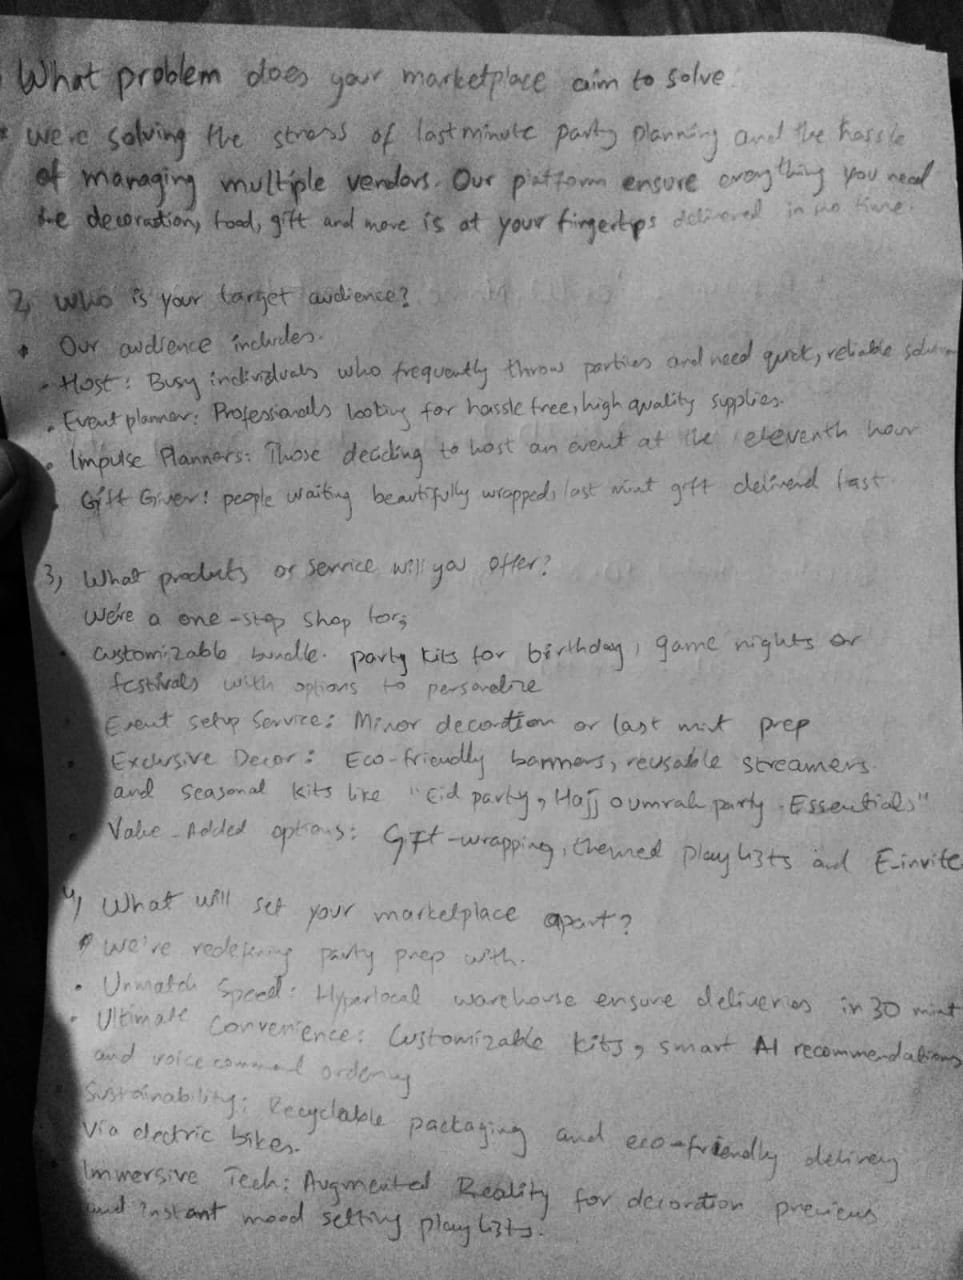 What problem does your marketplace aim to solve
* We're solving the stress of last minute party planning and the hassle
of managing multiple vendors. Our platform ensure everything you need
be decoration, food, gift and more is at your fingertips delivered in no time.
2, Who is your target audience?
* Our audience includes.
• Host: Busy individuals who frequently throw parties and need quick, reliable solution
• Event planner: Professionals looking for hassle free, high quality supplies.
• Impulse Planners: Those deciding to host an event at the eleventh hour
• Gift Giver: people waiting beautifully wrapped, last mint gift delivered fast.
3, What products or service will you offer?
We're a one-stop shop for;
• Customizable bundle. party kits for birthday, game nights or
festivals with options to personalize
• Event setup Service: Minor decortion or last mint prep
• Exclusive Decor: Eco-friendly banners, reusable streamers.
and seasonal kits like "Eid party, Hajj o umrah party Essentials"
• Value-Added options: Gift-wrapping, themed playlists and E-invite
4, What will set your marketplace apart?
* We're redefining party prep with.
• Unmatch Speed: Hyperlocal warehouse ensure deliveries in 30 mint
• Ultimate Convenience: Customizable kits, smart AI recommendations
and voice command ordering
• Sustainability: Recyclable packaging and eco-friendly delivery
via electric bikes.
• Immersive Tech: Augmented Reality for decortion previews
and instant mood setting playlists.